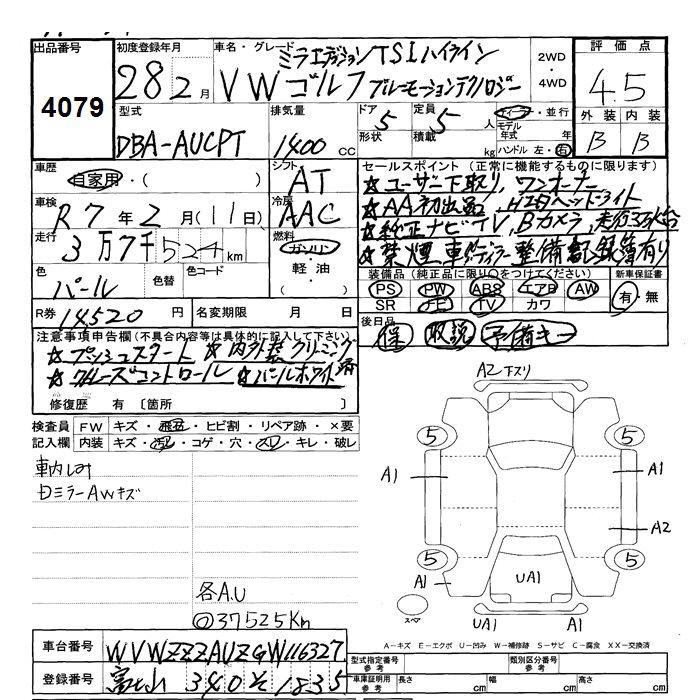 出品番号
4079
初度登録年月
28 2月
車名・グレード
ミラノエディション TSI ハイライン
VW ゴルフ ブルーモーションテクノロジー
2WD・4WD
評価点
4.5
外装 内装
B B
型式
DBA-AUCPT
排気量
1400 CC
ドア 5
形状
定員 5人
積載 kg
ディーラー・並行
モデル年式 年
ハンドル 左・右
車歴
自家用・( )
シフト
AT
車検
R7年2月(11日)
冷房
AAC
走行
3万7千524km
燃料
ガソリン・軽油・( )
色
パール
色替
色コード
R券
14520円
名変期限 月 日
セールスポイント(正常に機能するものに限ります)
☆ユーザー下取り、ワンオーナー
☆AA初出品、HIDヘッドライト
☆純正ナビTV、Bカメラ、走行3万km台
☆禁煙車 ディーラー整備記録簿有り
装備品(純正品に限り○をつけてください)
PS PW ABS エアB AW
SR ナビ TV カワ
新車保証書
有・無
後日品
保 取説 予備キー
注意事項申告欄(不具合内容等は具体的に記入して下さい)
☆プッシュスタート ☆内外装クリーニング済
☆クルーズコントロール ☆パールホワイト
修復歴 有〔箇所 〕
検査員記入欄
FW キズ・飛石・ヒビ割・リペア跡・×要
内装 キズ・汚れ・コゲ・穴・スレ・キレ・破レ
車内しみ
Dミラー AWキズ
各A.U
◎37525Km
A2 下スリ
5 5
A1 A1
A2
5 5
A1
UA1
スペア
UA1 A1
A‐キズ E‐エクボ U‐凹み W‐補修跡 S‐サビ C‐腐食 XX‐交換済
車台番号
WVWZZZAUZGW116327
登録番号
富士山 340 そ 1835
型式指定番号 参考
類別区分番号 参考
車庫証明用 参考
長さ cm
幅 cm
高さ cm